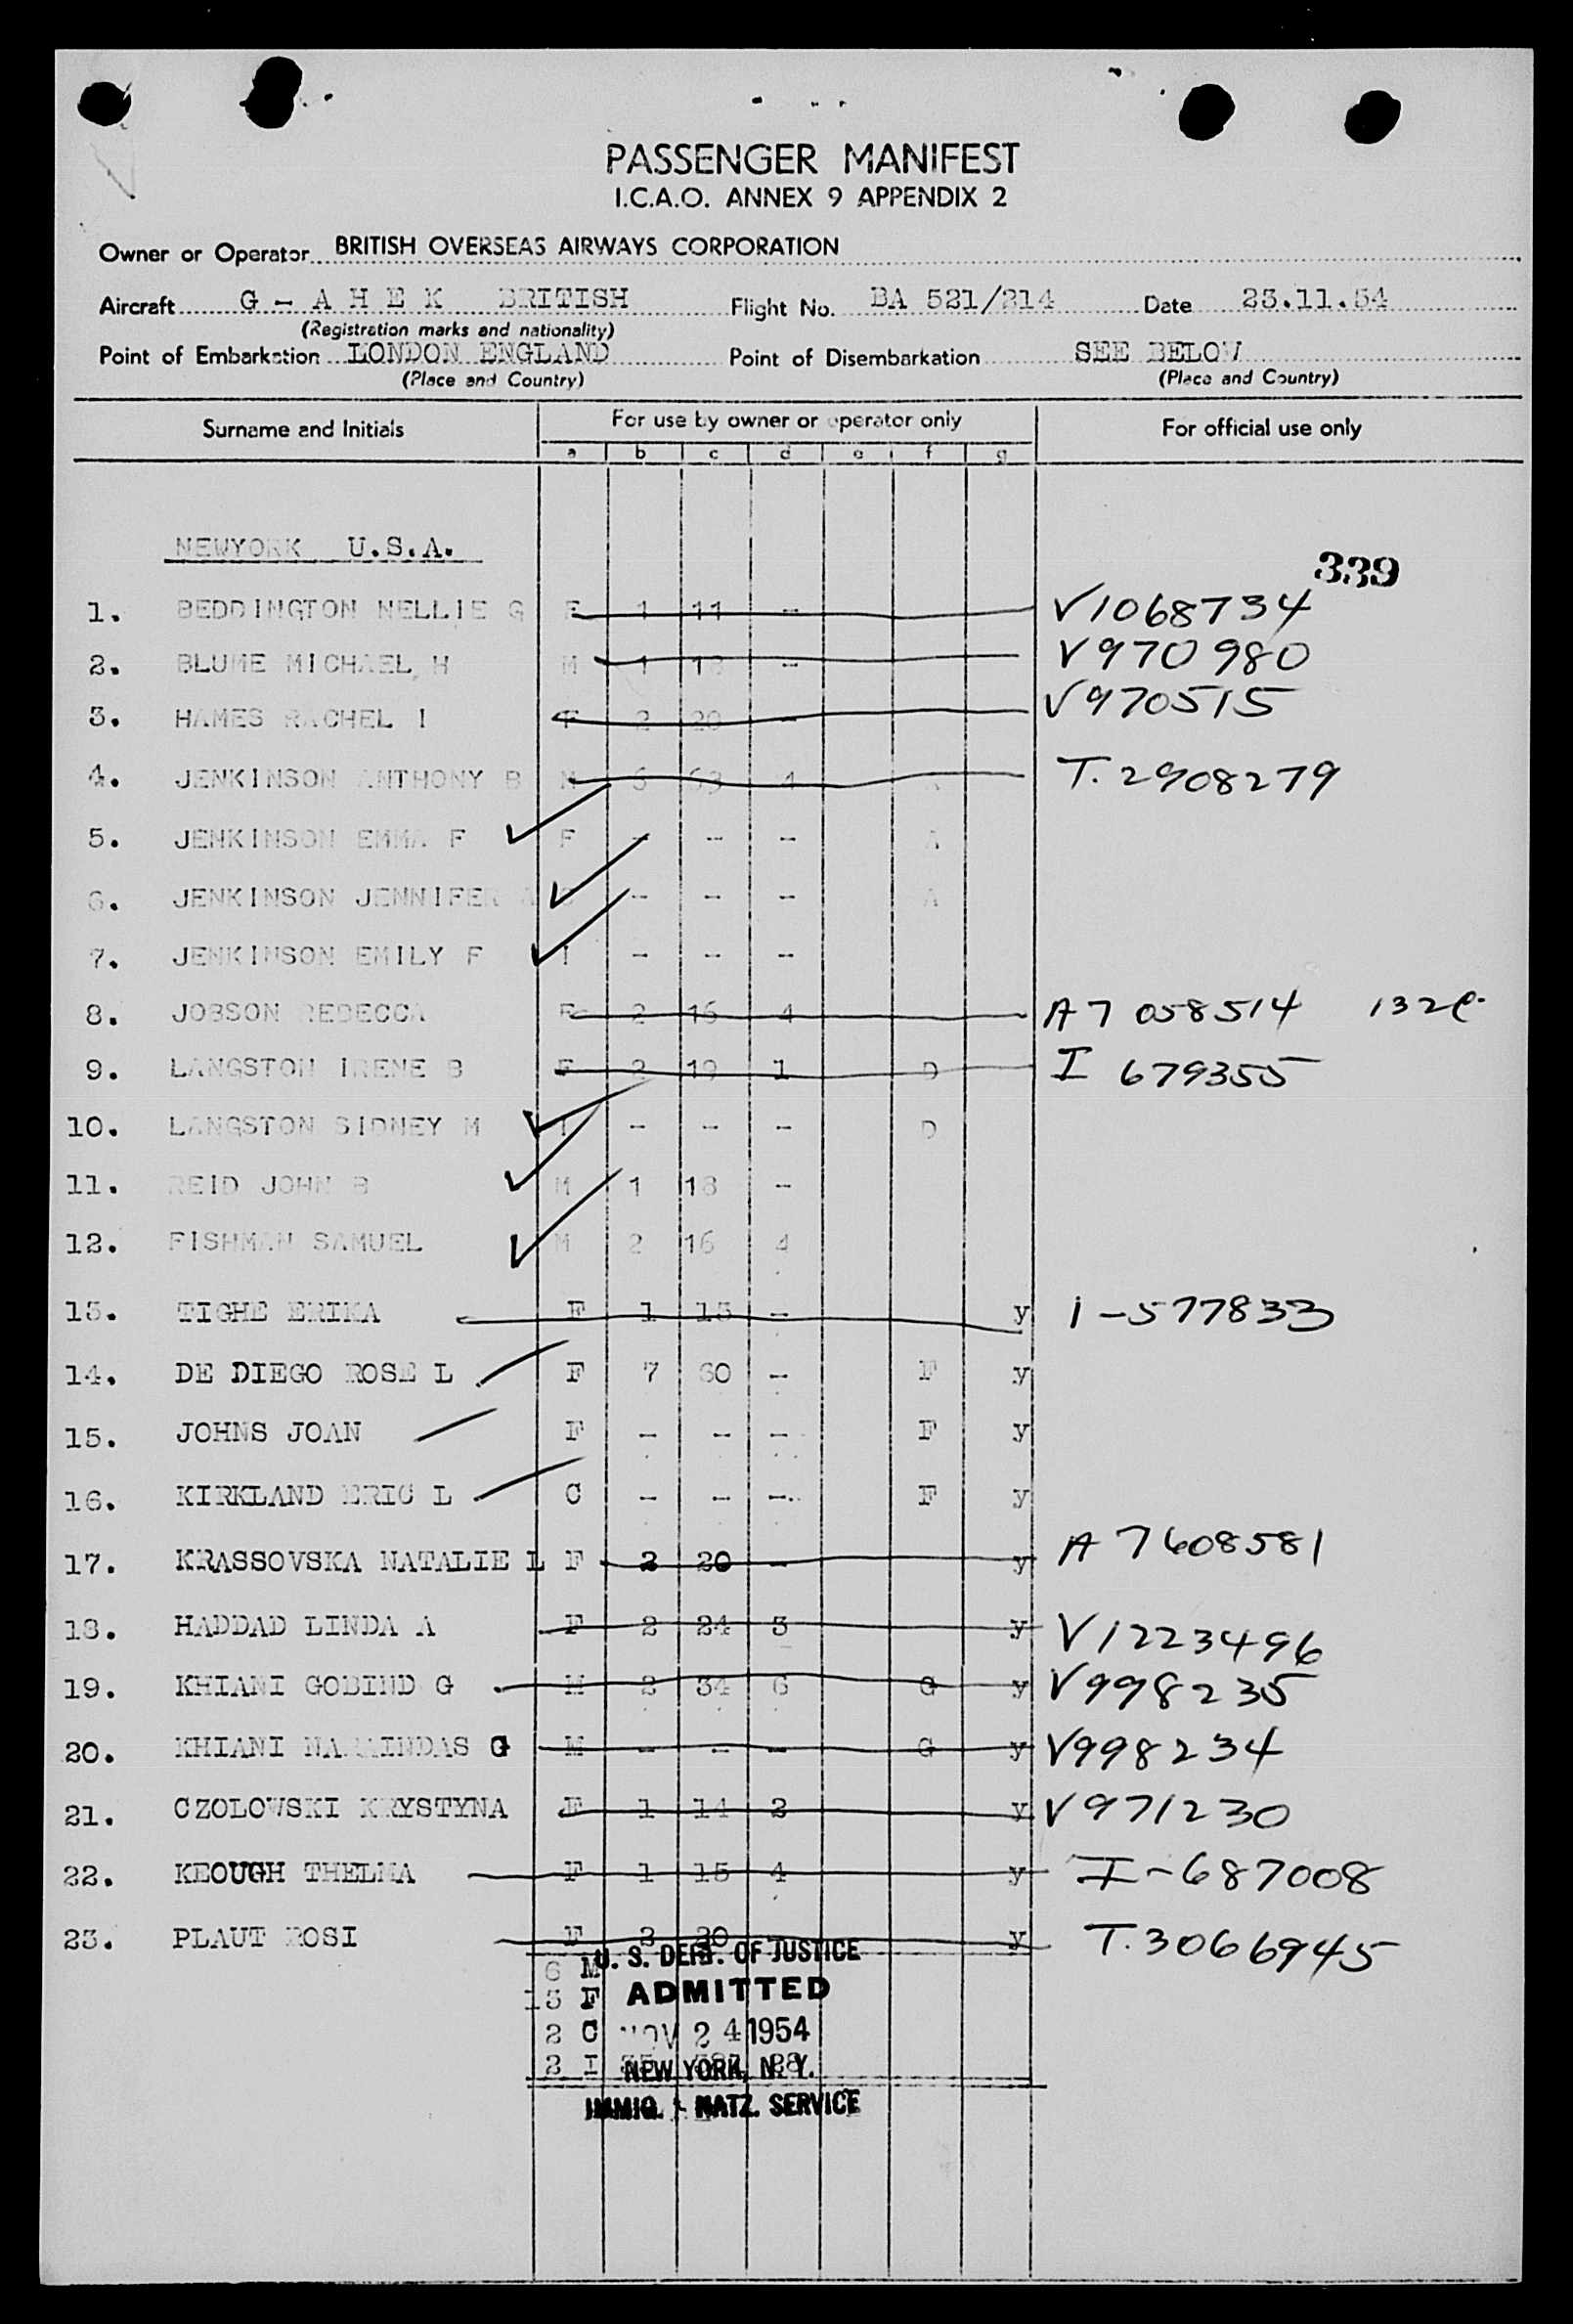 PASSENGER MANIFEST
I.C.A.O. ANNEX 9 APPENDIX 2
Owner or Operator BRITISH OVERSEAS AIRWAYS CORPORATION
Aircraft G - A H E K BRITISH Flight No. BA 521/214 Date 23.11.54
(Registration marks and nationality)
Point of Embarkation LONDON ENGLAND Point of Disembarkation SEE BELOW
(Place and Country) (Place and Country)
Surname and Initials For use by owner or operator only For official use only
a b c d e f g
NEWYORK U.S.A.
339
1. BEDDINGTON NELLIE G F 1 11 - V1068734
2. BLUME MICHAEL H M 1 18 - V970980
3. HAMES RACHEL I F 2 20 - V970515
4. JENKINSON ANTHONY B M 6 63 4 A T. 2908279
5. JENKINSON EMMA F F - - - A
6. JENKINSON JENNIFER A C - - - A
7. JENKINSON EMILY F I - - -
8. JOBSON REBECCA F 2 16 4 A7 058514 132e
9. LANGSTON IRENE B F 2 19 1 D I 679355
10. LANGSTON SIDNEY M I - - - D
11. REID JOHN B M 1 18 -
12. FISHMAN SAMUEL M 2 16 4
13. TIGHE ERIKA F 1 13 - y I-577833
14. DE DIEGO ROSE L F 7 60 - F y
15. JOHNS JOAN F - - - F y
16. KIRKLAND ERIC L C - - - F y
17. KRASSOVSKA NATALIE L F 2 20 - y A 7608581
18. HADDAD LINDA A F 2 24 3 y V1223496
19. KHIANI GOBIND G M 2 34 6 G y V998235
20. KHIANI NARAINDAS G M - - - G y V998234
21. CZOLOWSKI KRYSTYNA F 1 14 2 y V971230
22. KEOUGH THELMA F 1 15 4 y I-687008
23. PLAUT ROSI F 2 20 - y T.3066945
6 M U. S. DEPT. OF JUSTICE
13 F ADMITTED
2 C NOV 24 1954
2 I NEW YORK, N. Y.
IMMIG. & NATZ. SERVICE